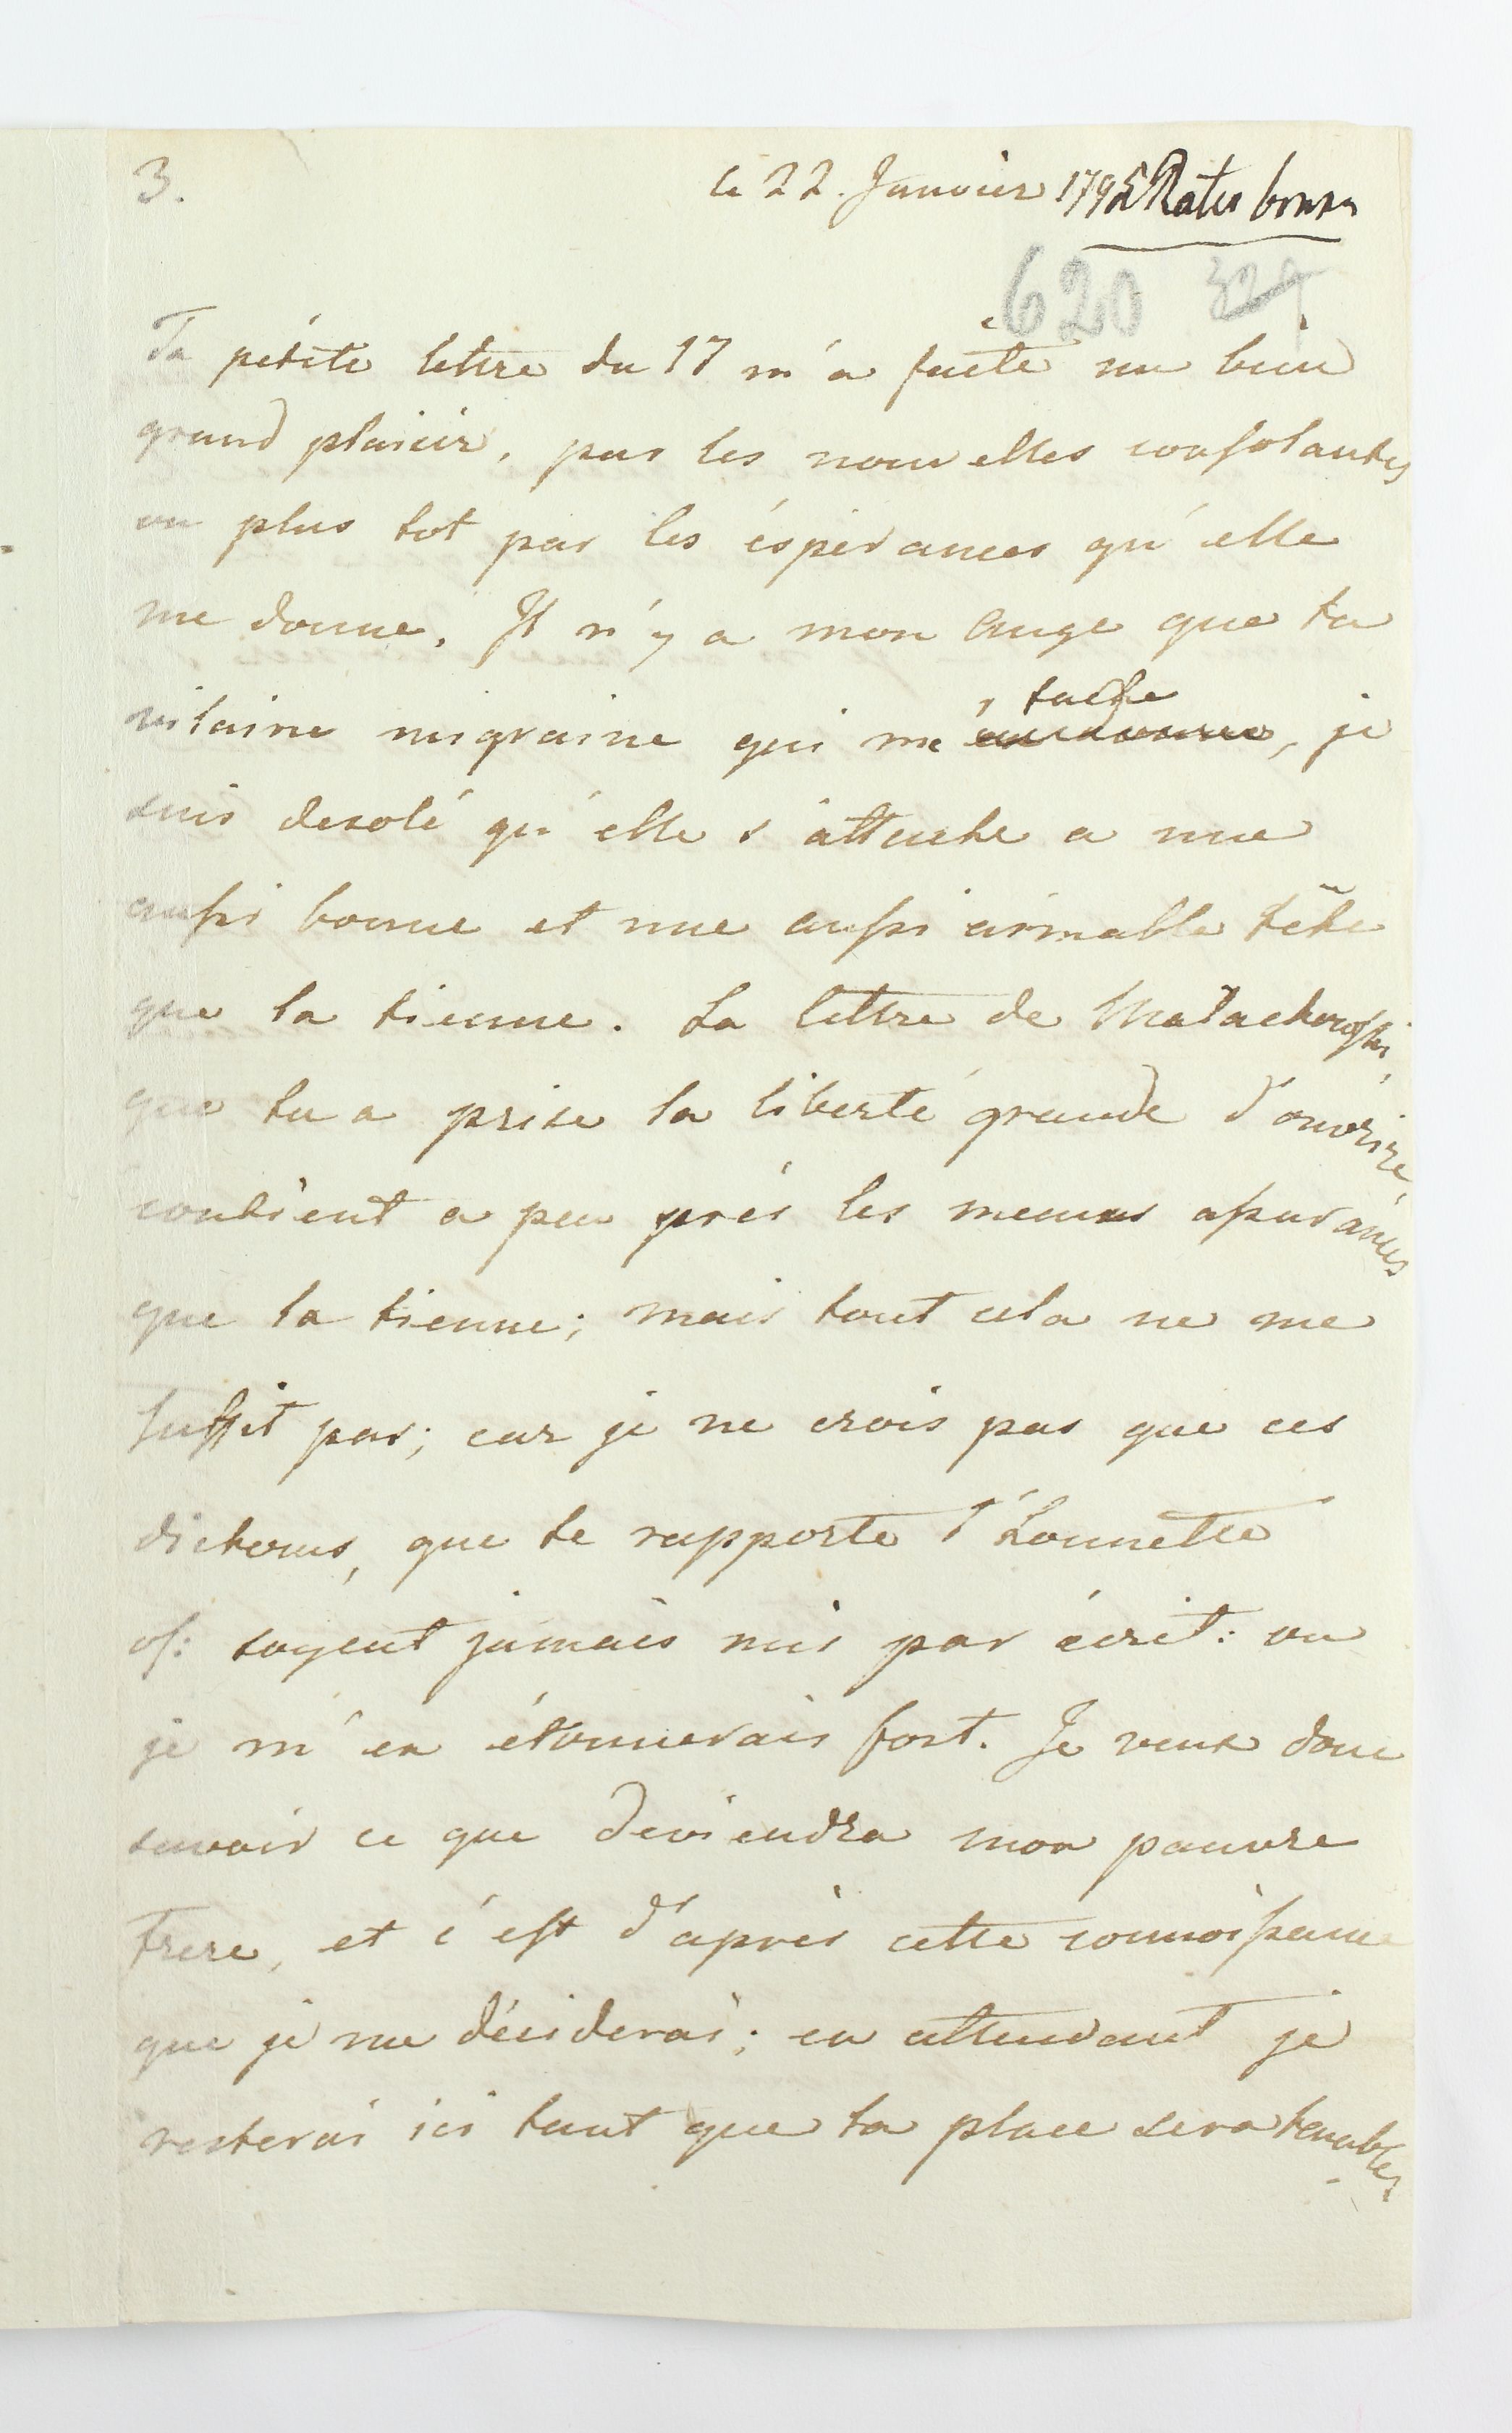 3.
le 22. Janvier 1795 Ratisbonne
620 324
Ta pétite lettre du 17 m'a faite un bien
grand plaisir, par les nouvelles consolantes
ou plus tot par les éspérances qu'elle
me donne. Il n'y a mon Ange que ta
vilaine migraine qui me fache, je
suis desolé qu'elle s'attache a une
aussi bonne et une aussi aimable tête
que la tienne. La lettre de Malachowski,
que tu a prise la liberté grande d'ouvrire,
contient a peu prés les memes assurances
que la tienne; mais tout cela ne me
suffit pas; car je ne crois pas que ces
dictons, que te rapporte l'honnette
of: soyent jamais mis par écrit: ou
je m'en étonnerais fort. Je veux donc
savoir ce que deviendra mon pauvre
Frere, et c'est d'après cette connoissance
que je me déciderai; en attendant je
resterai ici tant que la place sera tenable,